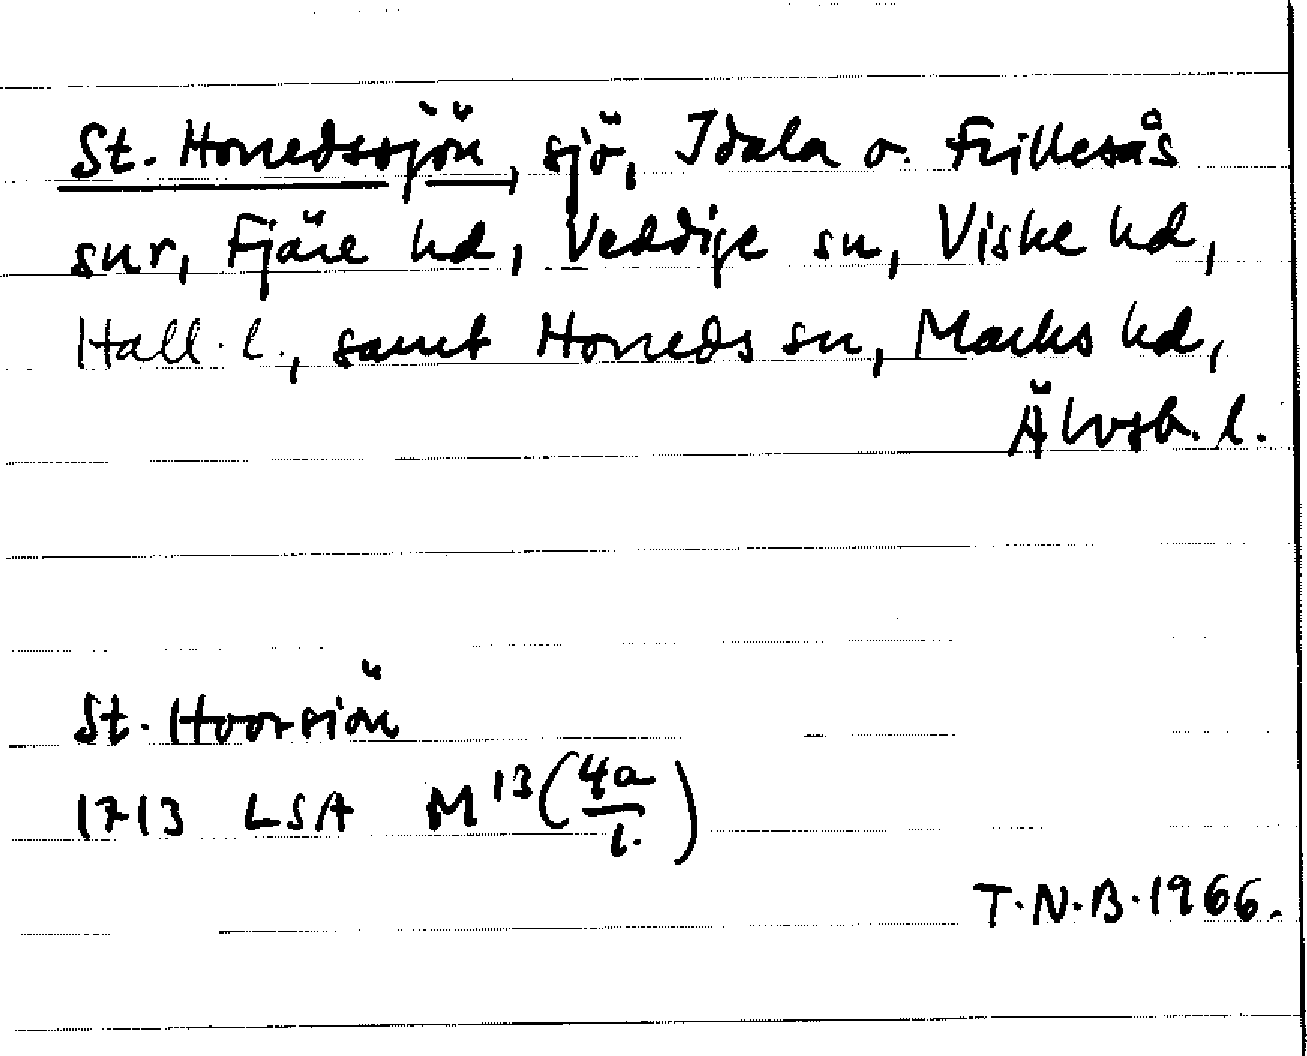 St. Horredssjön, sjö, Idala o. Frillesås
snr, Fjäre hd, Veddige sn, Viske hd,
Hall. l., samt Horreds sn, Marks hd,
Älvsb. l.
St. Hoorsiön
1713 LSA M 13 (4a/1.)
T.N.B. 1966.